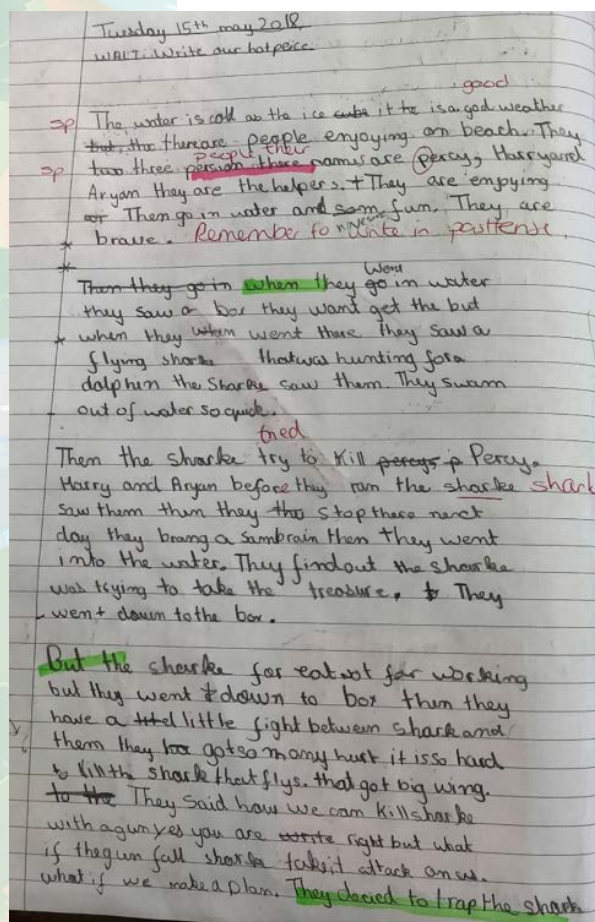 Tuesday 15th may 2018
WALT: Write our hot peice.
good
sp The water is cold as the ice cube it is a god weather
but, the there are people enjoying on beach. They
people their
sp too three persian there names are Percy, Harry and
Aryan they are the helpers. They are enjoying
Then go in water and som fun. They are
brave. Remember to write in past tense.
Went
Then they go in when they go in water
they saw a box they want get the but
when they when went there they saw a
flying sharke that was hunting for a
dolphin the Sharke saw them. They swam
out of water so quick.
tried
Then the sharke try to kill percys p Percy.
Harry and Aryan before they ran the sharke shark
saw them then they tho stop there next
day they brang a Sambrain then they went
into the water. They findout the sharke
was trying to take the treasure. They
went down to the box.
But the sharke for eat not for working
but they went down to box then they
have a little fight between shark and
them they got so many hurt it is so hard
to kill the shark that flys. that got big wing.
to the They said how we can kill sharke
with a gun yes you are write right but what
if the gun fall sharke take it attack on us.
what if we make a plan. They decied to trap the shark